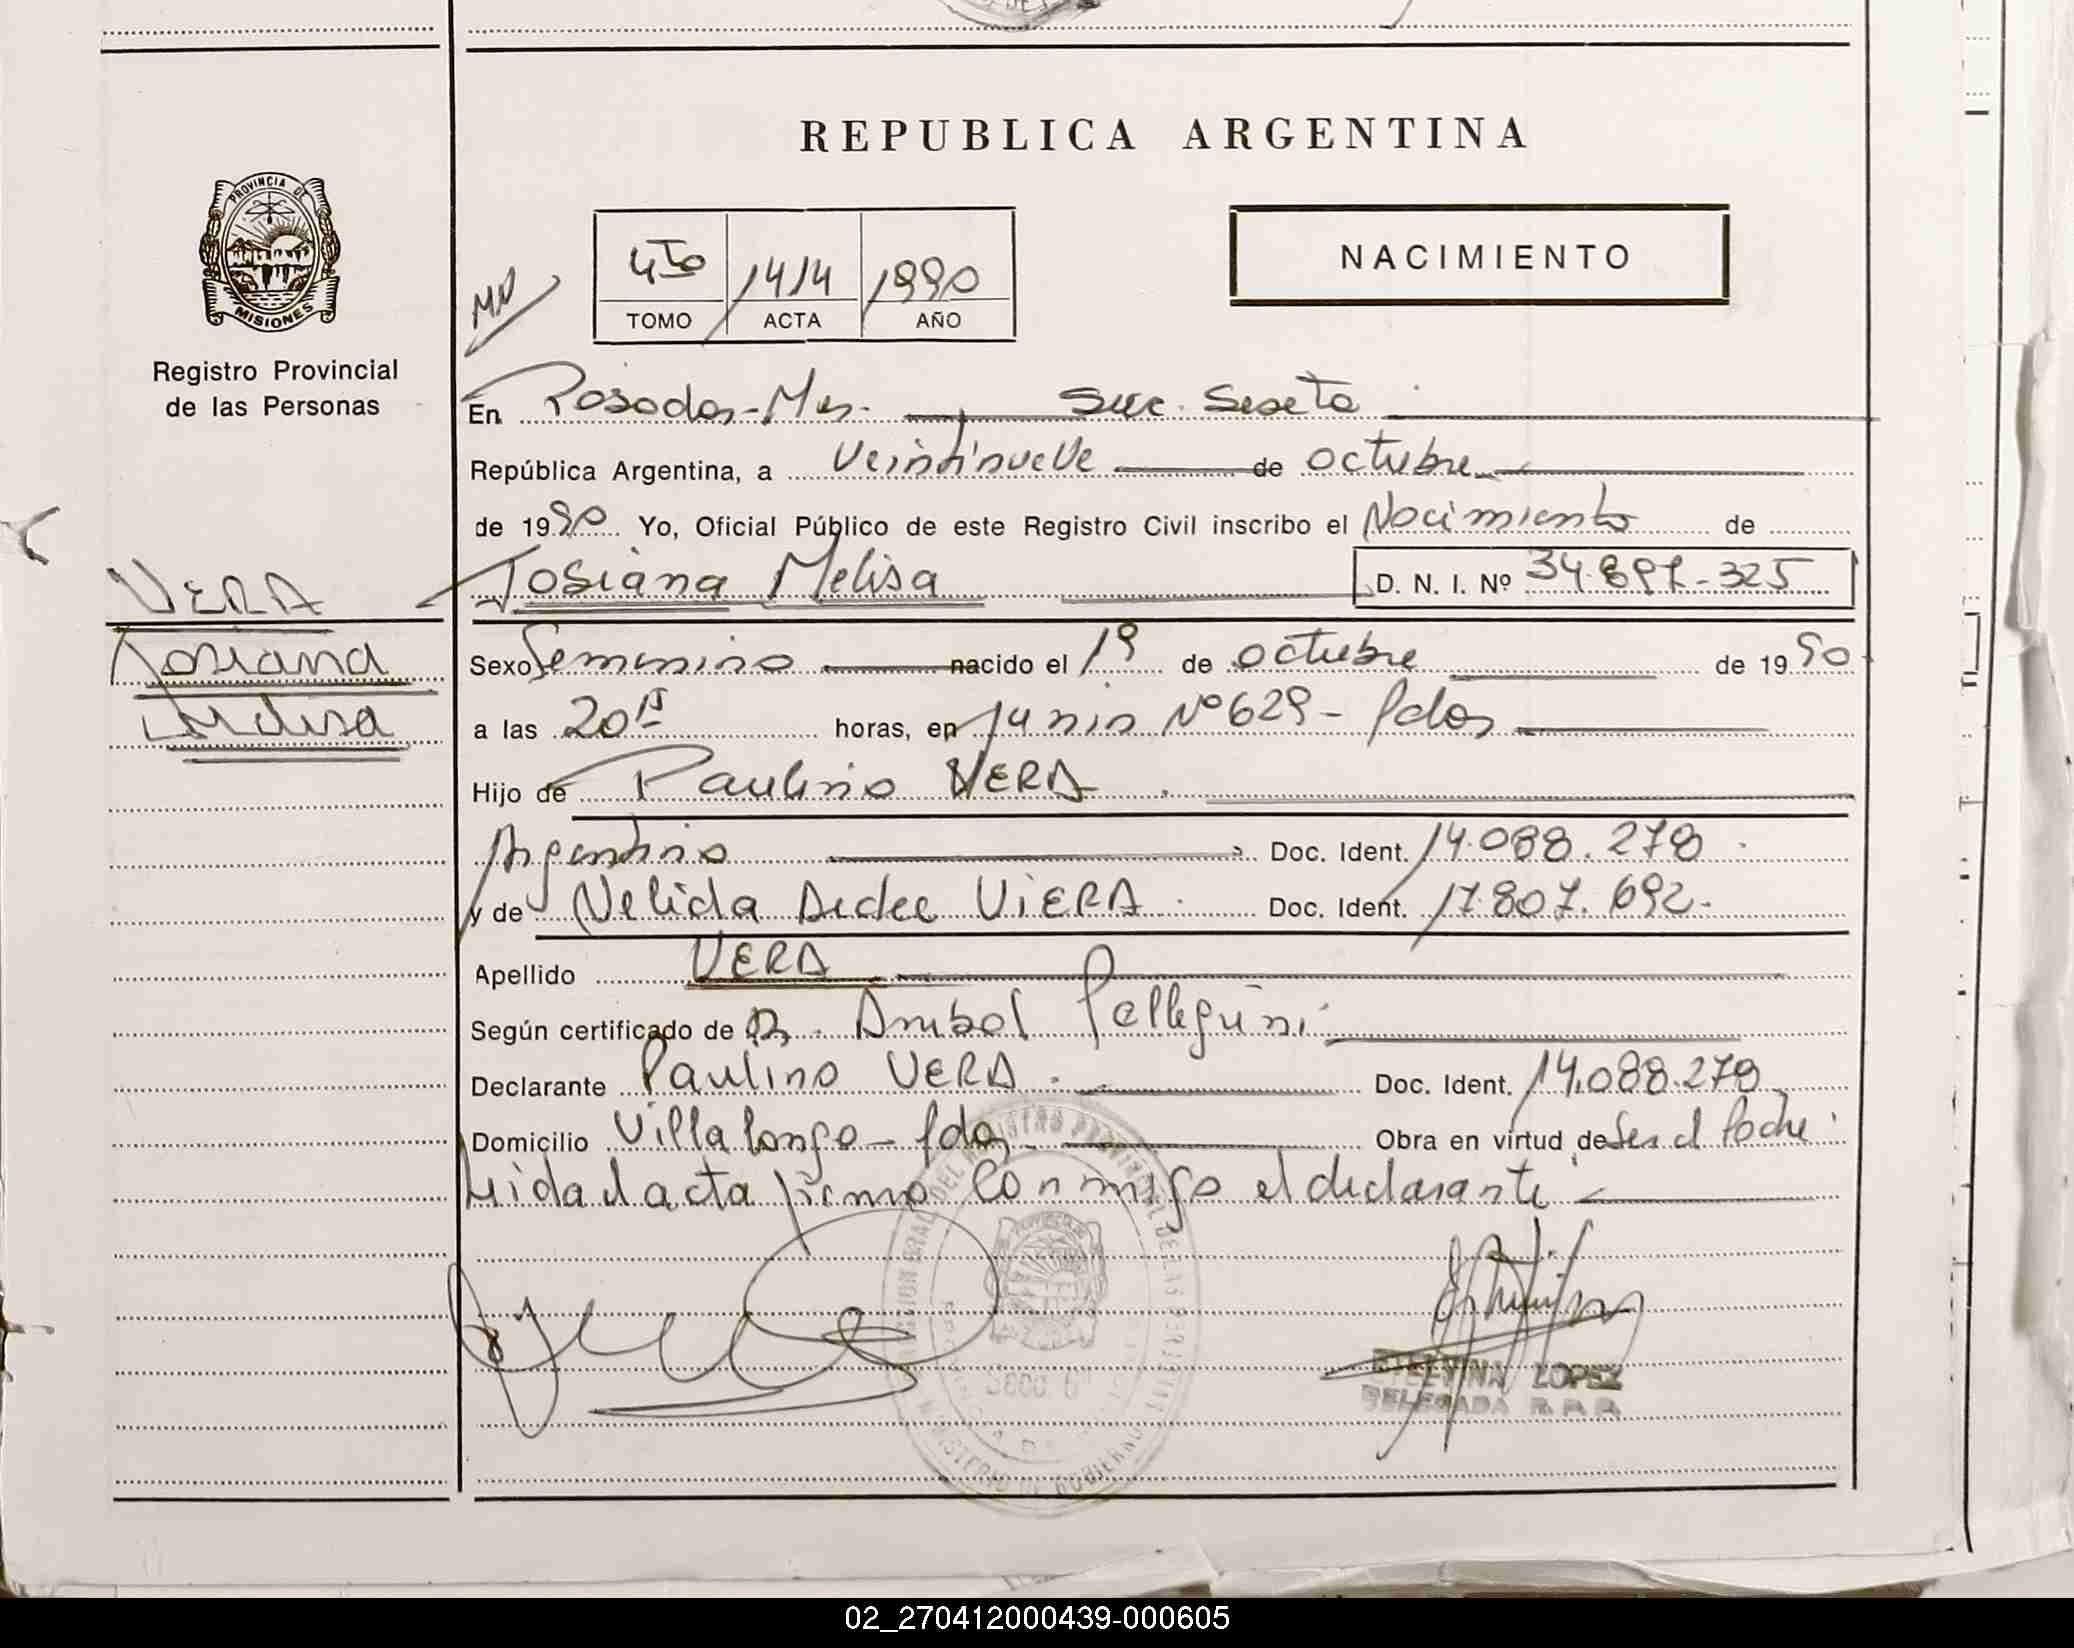 REPUBLICA ARGENTINA
PROVINCIA DE
MISIONES
Registro Provincial
de las Personas
4to 1414 1990
TOMO ACTA AÑO
NACIMIENTO
En Posadas-Mnes. Secc. Sexta
República Argentina, a Veintinueve de octubre
de 1990 Yo, Oficial Público de este Registro Civil inscribo el Nacimiento de
Josiana Melisa D. N. I. Nº 34.897-325
VERA
Josiana
Melisa
Sexo femenino nacido el 19 de octubre de 1990
a las 20 horas, en Junin Nº 629 - Pdas
Hijo de Paulino VERA
Argentino Doc. Ident. 14.088.278
y de Nelida Aidee ViERA Doc. Ident. 17.807.692.
Apellido VERA
Según certificado de Dr. Anibal Pellegrini
Declarante Paulino VERA Doc. Ident. 14.088.278
Domicilio Villa longa - Pdas Obra en virtud de Ser el Padre
Leida el acta firma conmigo el declarante
DEL REGISTRO PROVINCIAL DE LAS PERSONAS
MINISTERIO DE GOBIERNO
Secc. 6ª
ETELVINA LOPEZ
DELEGADA R. P. P.
02_270412000439-000605